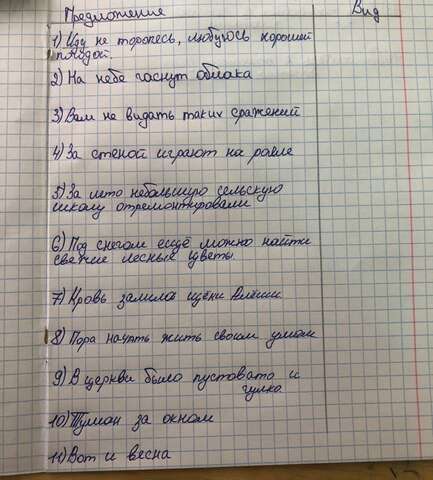 Предложение Вид
1) Иду не торопясь, любуюсь хорошей
погодой.
2) На небе гаснут облака
3) Вам не видать таких сражений
4) За стеной играют на рояле
5) За лето небольшую сельскую
школу отремонтировали
6) Под снегом ещё можно найти
свежие лесные цветы.
7) Кровь залила щёки Алёши
8) Пора начать жить своим умом
9) В церкви было пустовато и
гулко
10) Туман за окном
11) Вот и весна